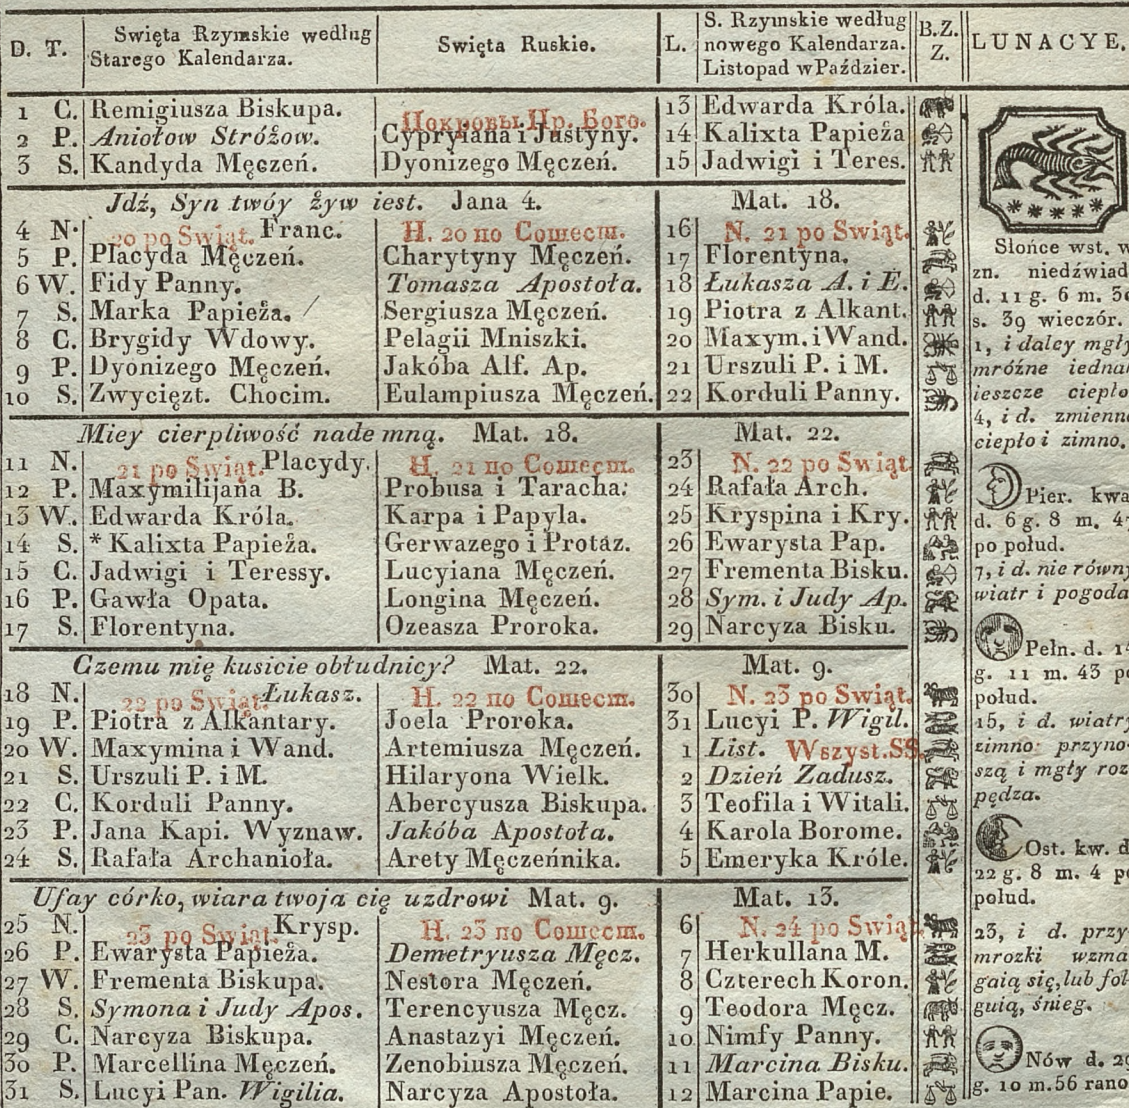 D. T. Swięta Rzymskie według Starego Kalendarza. Swięta Ruskie. L. S. Rzymskie według nowego Kalendarza. Listopad w Paździer. B.Z. Z. LUNACYE.
1 C. Remigiusza Biskupa. Покровы Пр. Бого. 13 Edwarda Króla.
2 P. Aniołow Stróżow. Cypryiana i Justyny. 14 Kalixta Papieża
3 S. Kandyda Męczeń. Dyonizego Męczeń. 15 Jadwigi i Teres.
Jdź, Syn twóy żyw iest. Jana 4. Mat. 18.
4 N. 20 po Swiąt. Franc. Н. 20 по Сошест. 16 N. 21 po Swiąt.
5 P. Placyda Męczeń. Charytyny Męczeń. 17 Florentyna.
6 W. Fidy Panny. Tomasza Apostoła. 18 Łukasza A. i E.
7 S. Marka Papieża. Sergiusza Męczeń. 19 Piotra z Alkant.
8 C. Brygidy Wdowy. Pelagii Mniszki. 20 Maxym. i Wand.
9 P. Dyonizego Męczeń. Jakóba Alf. Ap. 21 Urszuli P. i M.
10 S. Zwycięzt. Chocim. Eulampiusza Męczeń. 22 Korduli Panny.
Miey cierpliwość nade mną. Mat. 18. Mat. 22.
11 N. 21 po Swiąt. Placydy. Н. 21 по Сошест. 23 N. 22 po Swiąt
12 P. Maxymilijana B. Probusa i Taracha. 24 Rafała Arch.
13 W. Edwarda Króla. Karpa i Papyla. 25 Kryspina i Kry.
14 S. * Kalixta Papieża. Gerwazego i Protaz. 26 Ewarysta Pap.
15 C. Jadwigi i Teressy. Lucyiana Męczeń. 27 Frementa Bisku.
16 P. Gawła Opata. Longina Męczeń. 28 Sym. i Judy Ap.
17 S. Florentyna. Ozeasza Proroka. 29 Narcyza Bisku.
Czemu mię kusicie obłudnicy? Mat. 22. Mat. 9.
18 N. 22 po Swiąt. Łukasz. Н. 22 по Сошест. 30 N. 23 po Swiąt.
19 P. Piotra z Alkantary. Joela Proroka. 31 Lucyi P. Wigil.
20 W. Maxymina i Wand. Artemiusza Męczeń. 1 List. Wszyst. SS.
21 S. Urszuli P. i M. Hilaryona Wielk. 2 Dzień Zadusz.
22 C. Korduli Panny. Abercyusza Biskupa. 3 Teofila i Witali.
23 P. Jana Kapi. Wyznaw. Jakóba Apostoła. 4 Karola Borome.
24 S. Rafała Archanioła. Arety Męczeńnika. 5 Emeryka Króle.
Ufay córko, wiara twoja cię uzdrowi Mat. 9. Mat. 13.
25 N. 23 po Swiąt. Krysp. Н. 23 по Сошест. 6 N. 24 po Swiąt.
26 P. Ewarysta Papieża. Demetryusza Męcz. 7 Herkullana M.
27 W. Frementa Biskupa. Nestora Męczeń. 8 Czterech Koron.
28 S. Symona i Judy Apos. Terencyusza Męcz. 9 Teodora Męcz.
29 C. Narcyza Biskupa. Anastazyi Męczeń. 10 Nimfy Panny.
30 P. Marcellina Męczeń. Zenobiusza Męczeń. 11 Marcina Bisku.
31 S. Lucyi Pan. Wigilia. Narcyza Apostoła. 12 Marcina Papie.
Słońce wst. w
zn. niedźwiad
d. 11 g. 6 m. 30
s. 39 wieczór.
1, i daley mgły
mróźne iednak
ieszcze ciepło
4, i d. zmienne
ciepło i zimno.
Pier. kwa
d. 6 g. 8 m. 47
po połud.
7, i d. nie równy
wiatr i pogoda
Pełn. d. 14
g. 11 m. 43 po
połud.
15, i d. wiatry
zimno przyno-
szą i mgły roz
pędza.
Ost. kw. d
22 g. 8 m. 4 po
połud.
23, i d. przy-
mrozki wzma
gaią się, lub fol
guią, śnieg.
Nów d. 29
g. 10 m. 56 rano